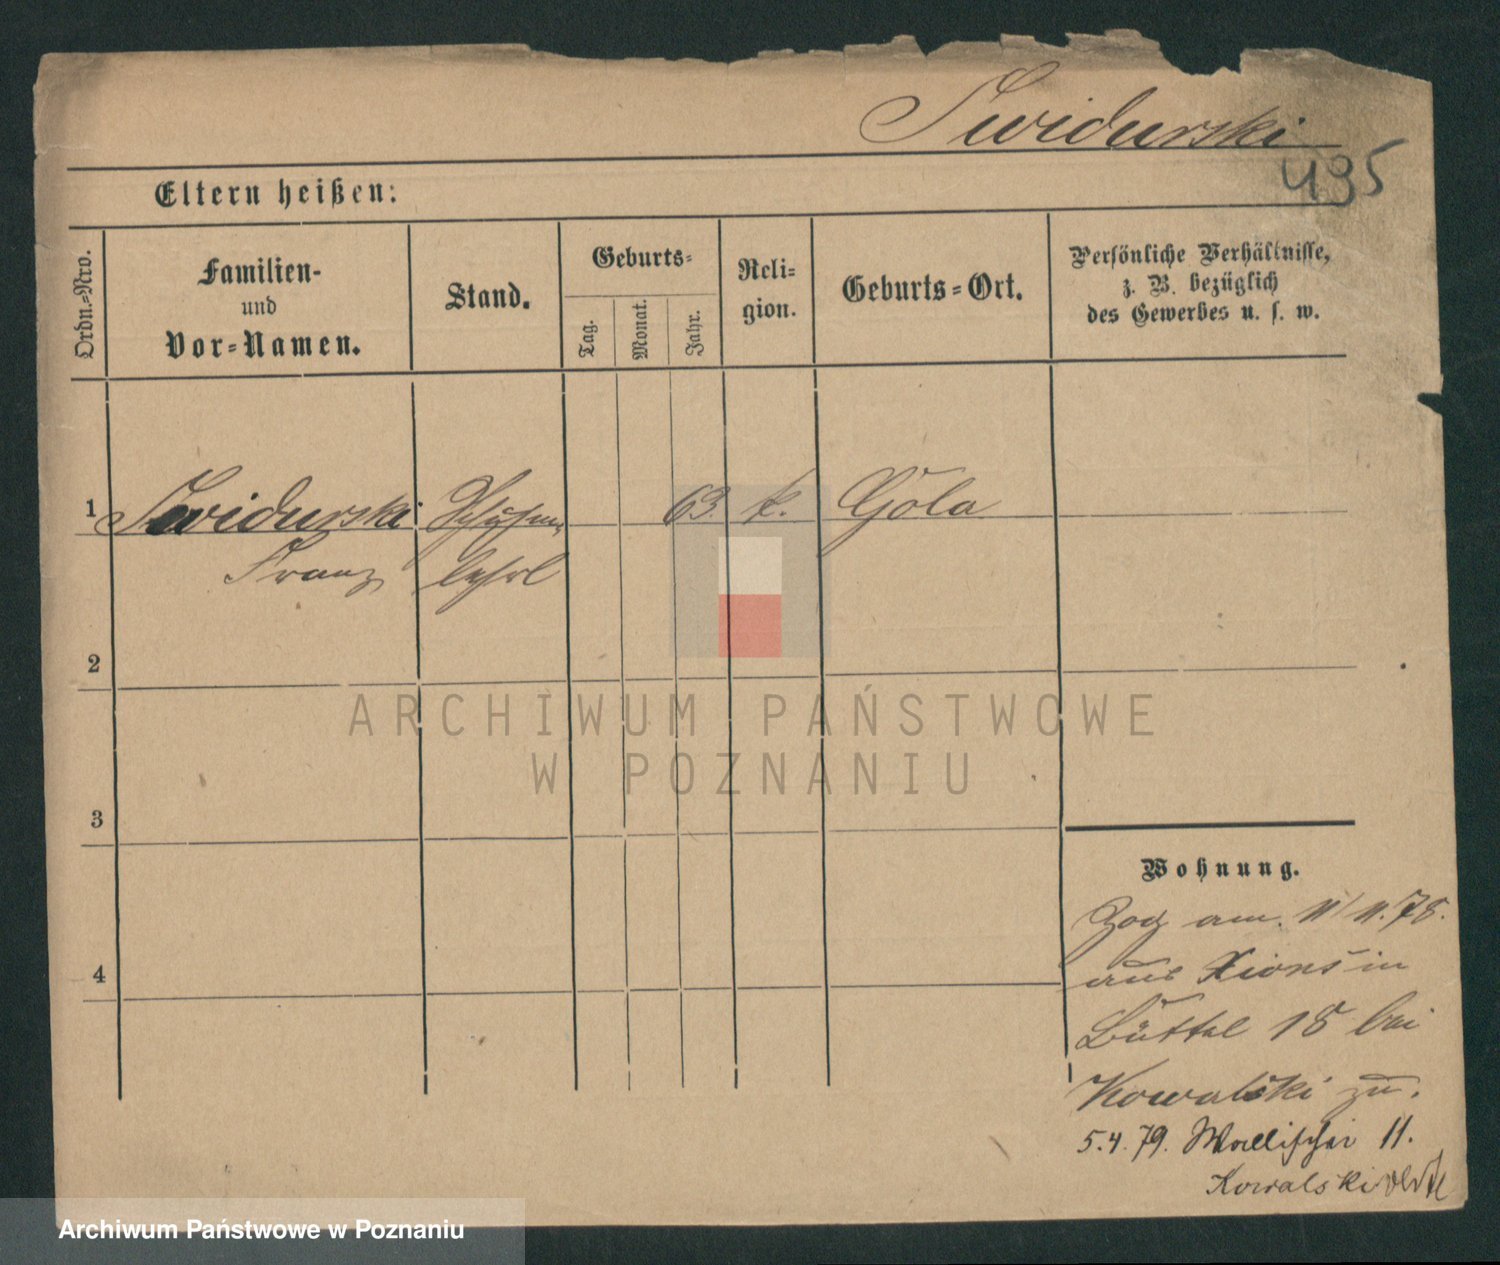 Swidurski
495
Eltern heißen:
Ordn.-Nro.
Familien-
und
Vor-Namen.
Stand.
Geburts-
Tag.
Monat.
Jahr.
Reli-
gion.
Geburts-Ort.
Persönliche Verhältnisse,
z. B. bezüglich
des Gewerbes u. s. w.
1 Swidurski 63. k. Gola
Franz lehrl
2
3
4
Wohnung.
Zog am 11/11.78.
aus Xions in
Büttel 18 bei
Kowalski zu.
5.4.79. Wallischei 11.
Kowalski
ARCHIWUM PAŃSTWOWE
W POZNANIU
Archiwum Państwowe w Poznaniu